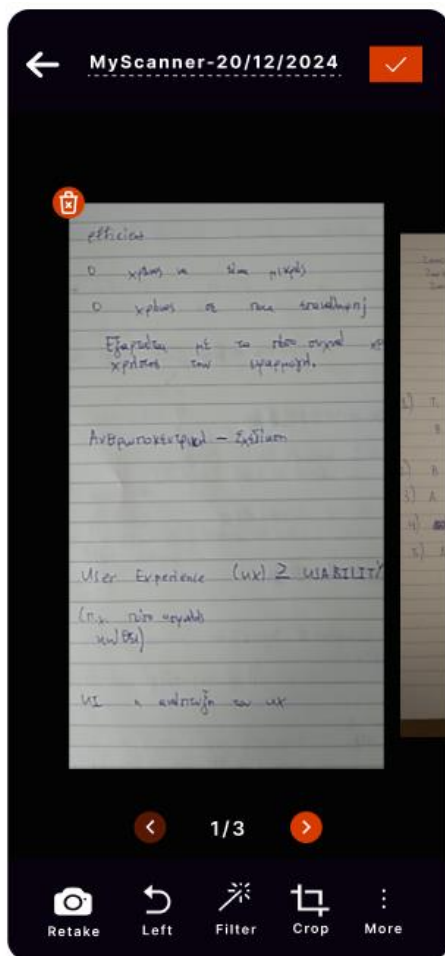 MyScanner-20/12/2024
efficient
Ο χρόνος να είναι μικρός
Ο χρόνος σε
Εξαρτάται με το πόσο συχνά
χρήστες την εφαρμογή.
Ανθρωποκεντρική - Σχεδίαση
User Experience (UX) ≥ USABILITY
(π.χ. πόσο
UI η ανάπτυξη του UX
1/3
Retake Left Filter Crop More